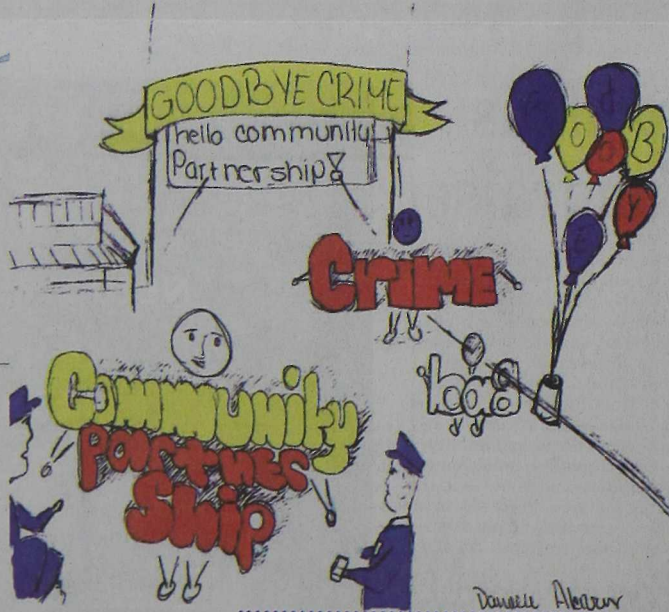 GOODBYE CRIME
hello community
Partnership!
GOODBYE
Crime
bad
Community
Partner
Ship